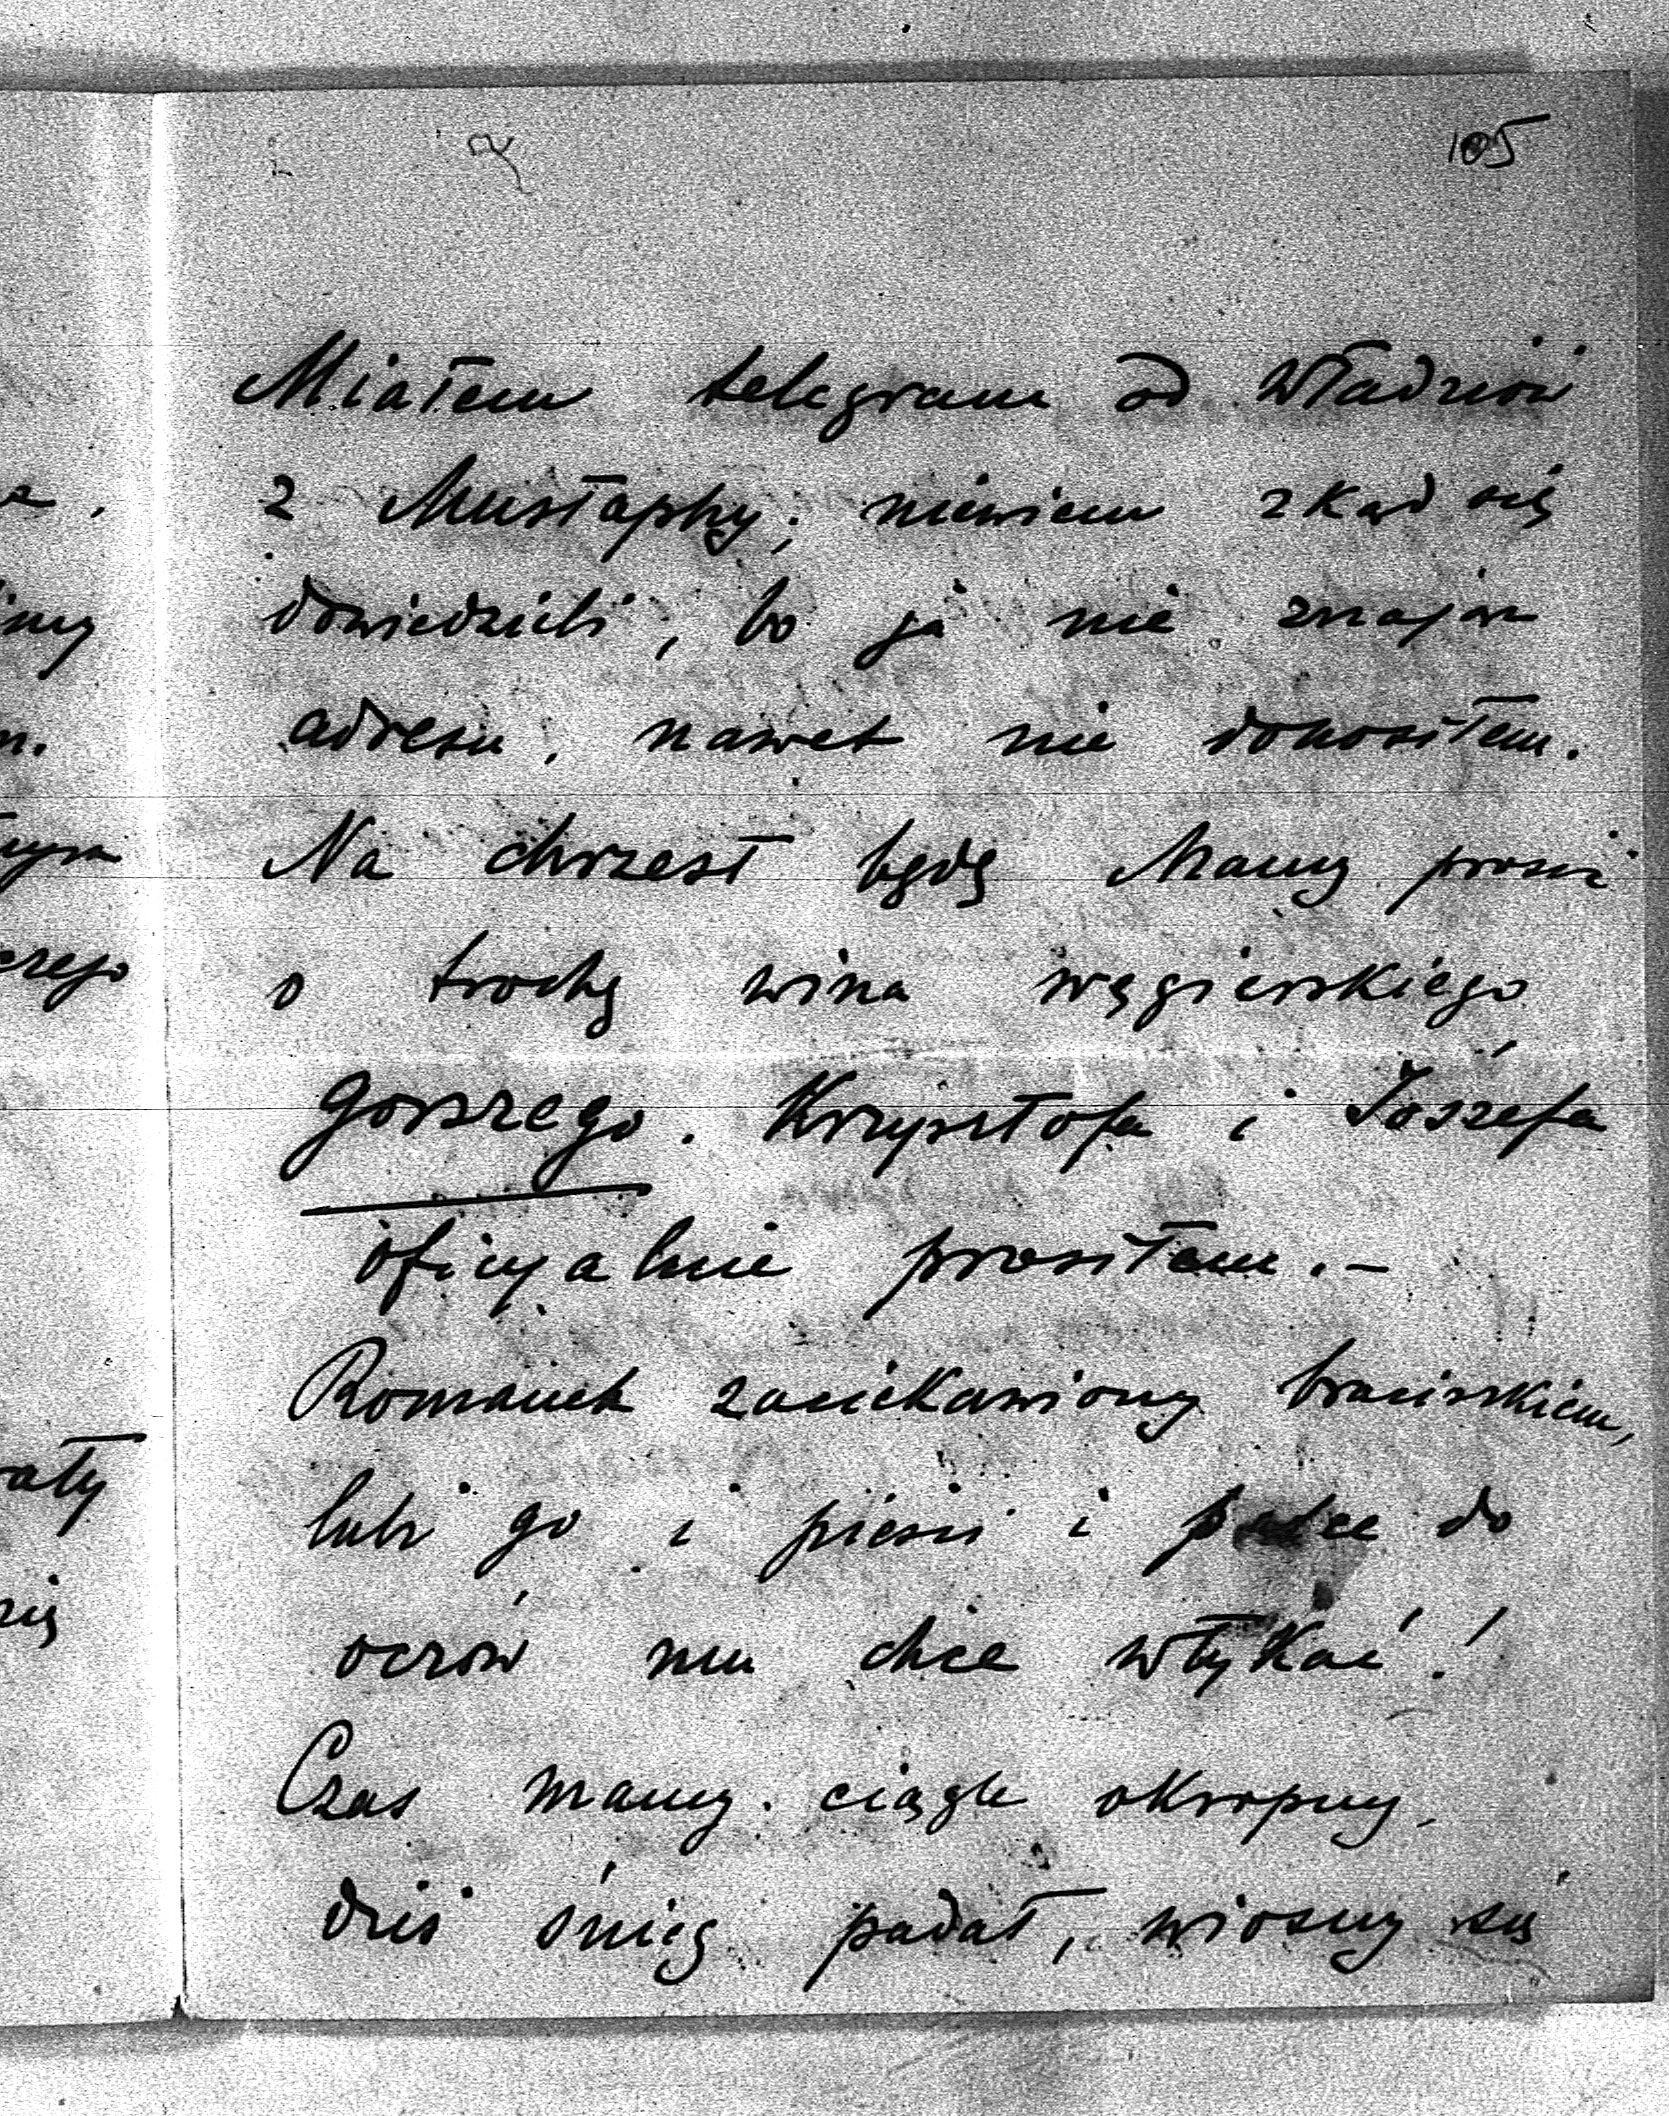 105
Miałem telegram od Władziów
z Mustaphy; niewiem zkąd się
dowiedzieli, bo ja nie znając
adresu, nawet nie donosiłem.
Na chrzest będę Mamy prosić
o trochę wina węgierskiego
gorszego. Krzysztofa i Józefa
oficyalnie prosiłem.–
Romanek zaciekawiony braciszkiem,
lubi go i pieści i palce do
oczów mu chce wtykać!
Czas mamy ciągle okropny,
dziś śnieg padał, wiosny się